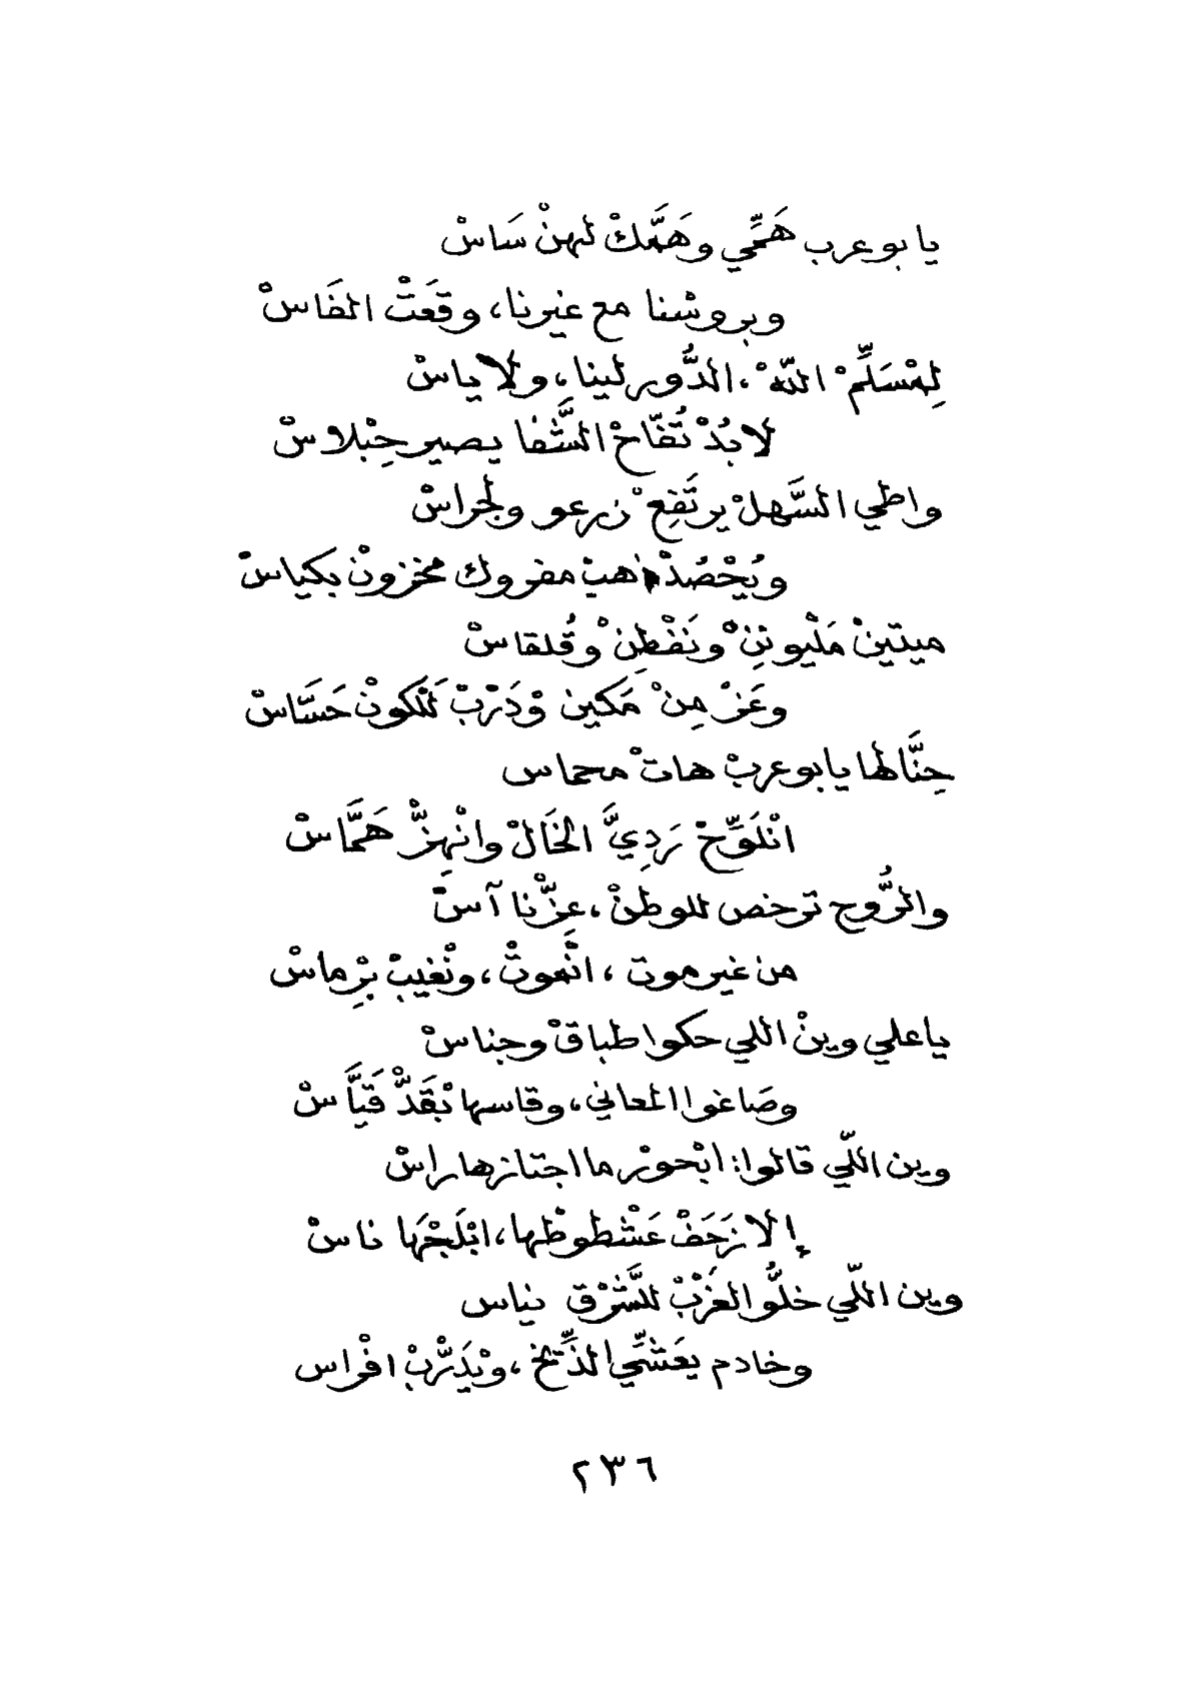 يا بو عرب هَمِّي وهَمَّكْ لهنْ سَاسْ
وبروسْنا مع غيرنا، وقَعَتْ الفَاسْ
لِمْسَلِّمْ اللّهْ، الدُّور لينا، ولا ياسْ
لا بُدْ تُفّاحْ الشَّفا يصير جِبْلاسْ
واطي السَّهلْ يرتَفِعْ زرعو ولجراسْ
ويُحْصُدْ ذهبْ مفروك مخزونْ بكياسْ
ميتينْ مَلْيونِنْ ونَفْطِنْ وقُلقاسْ
وعَنْ مِنْ مَكين وْدَرْبْ لَلْكونْ حَسَّاسْ
حِنَّا لها يا بو عربْ هاتْ محماس
انْلَوِّحْ رَدِيَّ الخَالْ وانْهِزّْ هَمَّاسْ
والرُّوح ترخص للوطنْ، عِزّْنا آسْ
من غير موت، انْموتْ، ونْغيبْ بِرْماسْ
يا علي وينْ اللي حكوا طباقْ وجناسْ
وصَاغوا المعاني، وقاسها بْقَدّْ قَيَّاسْ
وين اللّي قالوا: ابْحورْ ما اجتازها راسْ
إلا زَحَفْ عَشْطوطْها، ابْلَجْهَا ناسْ
وين اللّي خلُّو الغَرْبْ للشَّرْق نياس
وخادم يعَشِّي الذِّيخ، ويْدَرّْبْ افْراس
٢٣٦